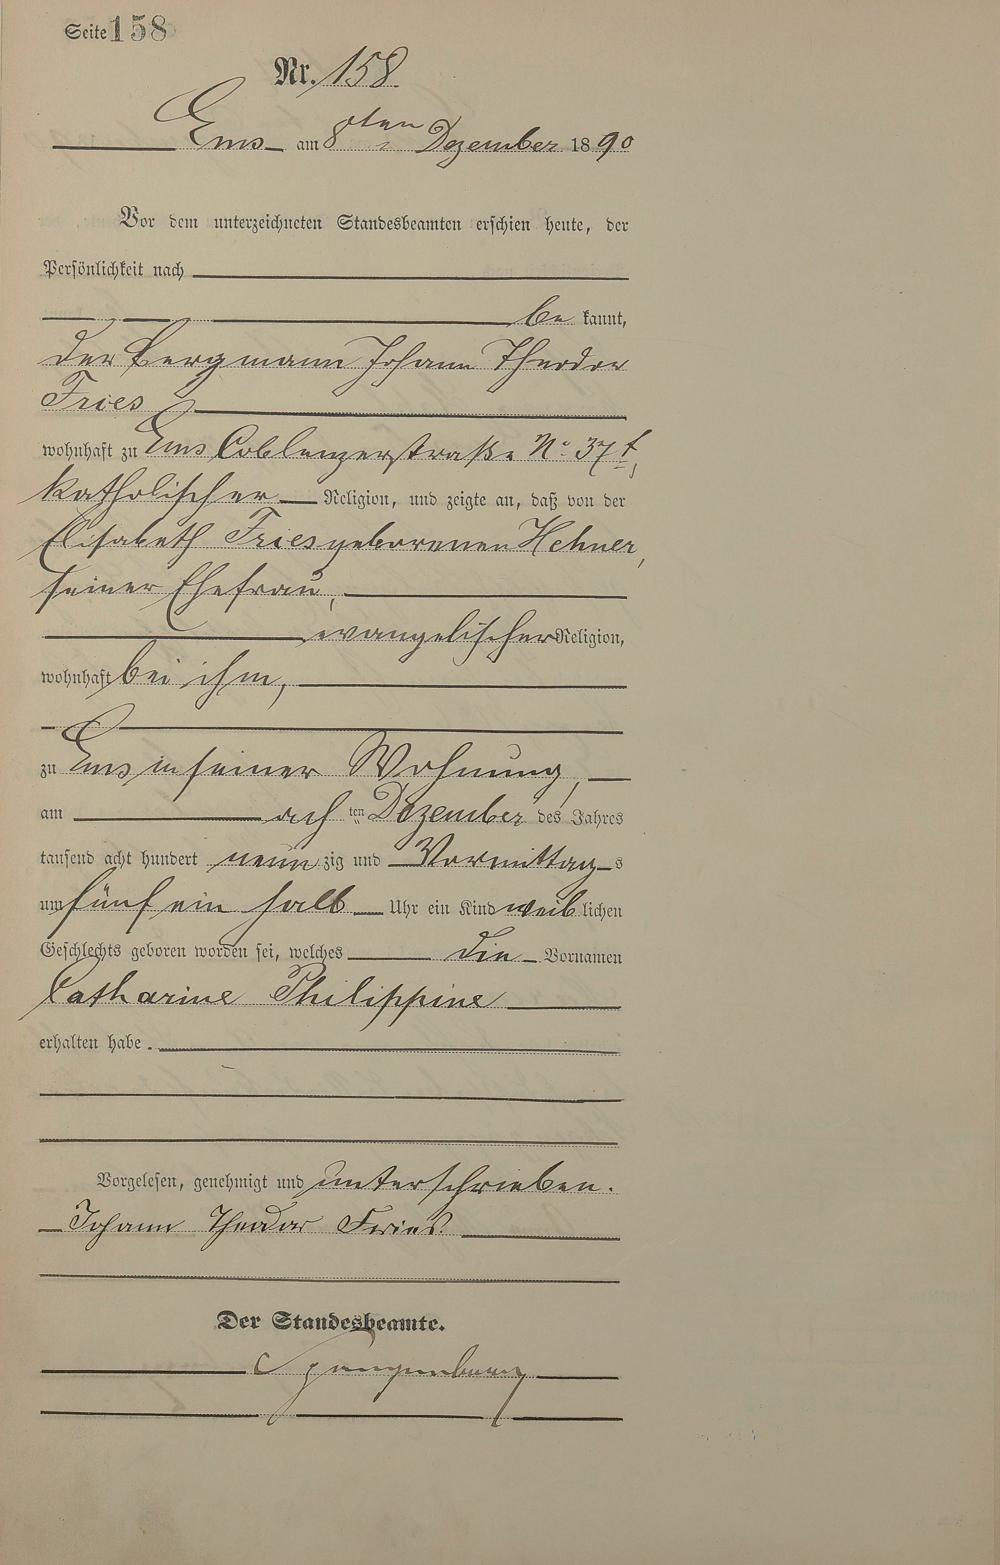 Seite 158
Nr. 158
Ems am 8ten Dezember 1890
Vor dem unterzeichneten Standesbeamten erschien heute, der
Persönlichkeit nach
be kannt,
der Bergmann Johann Theodor
Fries
wohnhaft zu Ems Coblenzerstraße No 37 f,
katholischer Religion, und zeigte an, daß von der
Elisabeth Fries geborenen Hehner,
seiner Ehefrau,
evangelischer Religion,
wohnhaft bei ihm,
zu Ems in seiner Wohnung,
am ach ten Dezember des Jahres
tausend acht hundert neun zig und Vormittag s
um fünf ein halb Uhr ein Kind weib lichen
Geschlechts geboren worden sei, welches die Vornamen
Catharine Philippine
erhalten habe.
Vorgelesen, genehmigt und unterschrieben.
Johann Theodor Fries
Der Standesbeamte.
Spangenberg